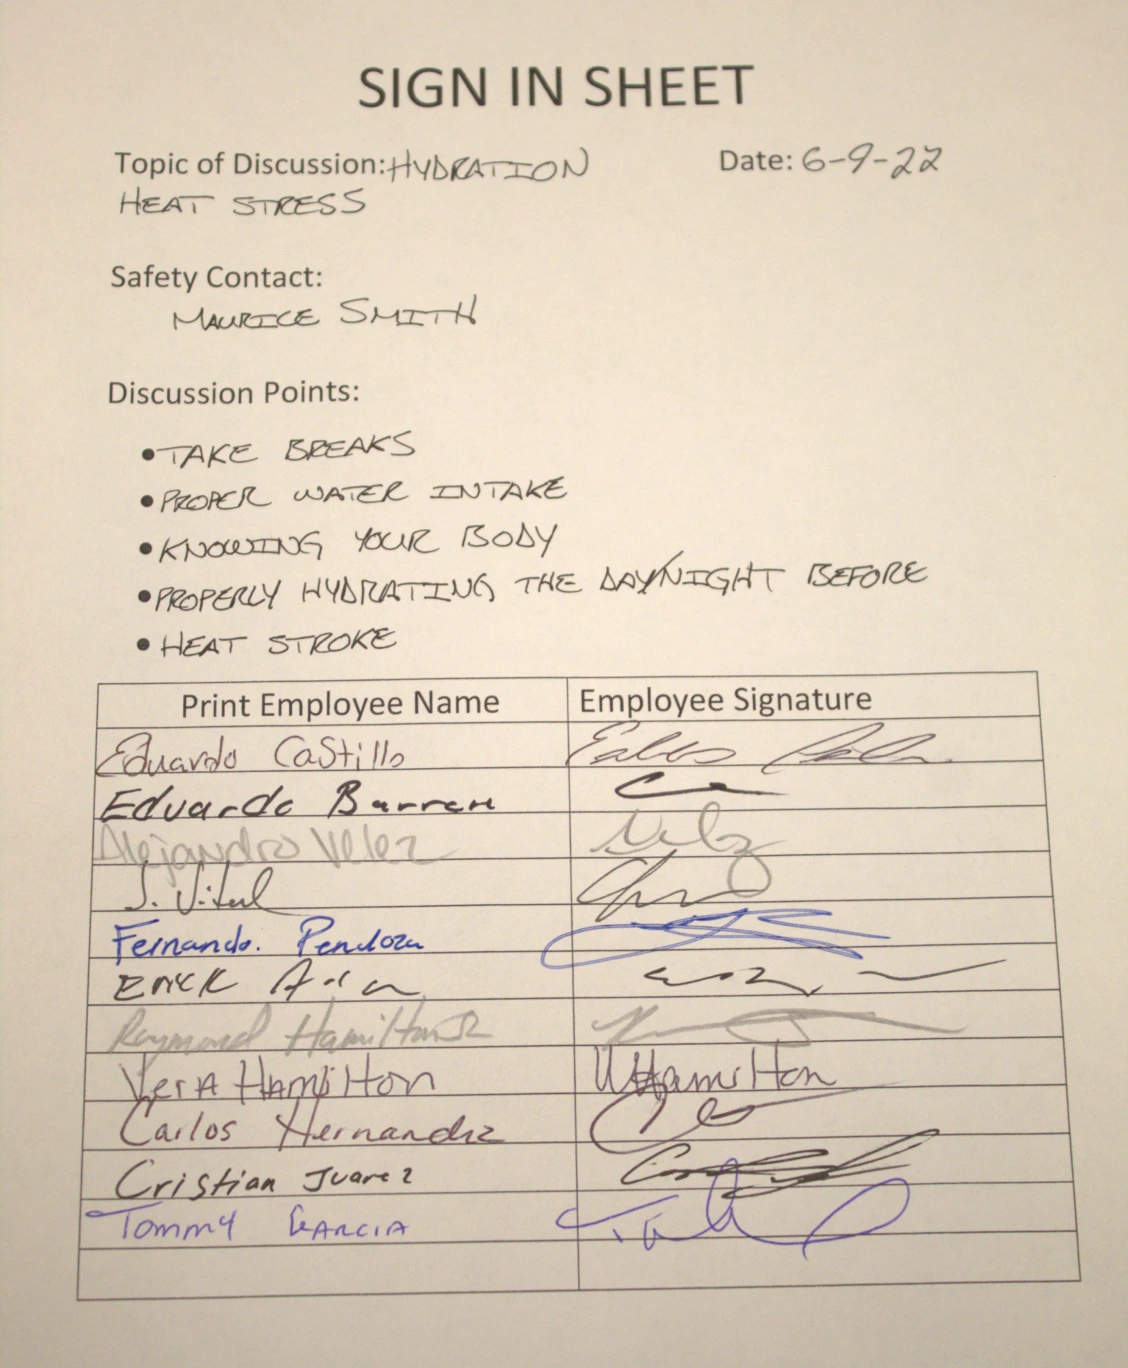 SIGN IN SHEET
Topic of Discussion: HYDRATION
Date: 6-9-22
HEAT STRESS
Safety Contact:
MAURICE SMITH
Discussion Points:
• TAKE BREAKS
• PROPER WATER INTAKE
• KNOWING YOUR BODY
• PROPERLY HYDRATING THE DAY/NIGHT BEFORE
• HEAT STROKE
Print Employee Name Employee Signature
Eduardo Castillo
Eduardo
Alejandro Velez Velz
J. Vital
Fernando. Pendoza
ERICK
Raymond Hamilton Jr
Vera Hamilton VHamilton
Carlos Hernandez
Cristian Juarez
Tommy GARCIA